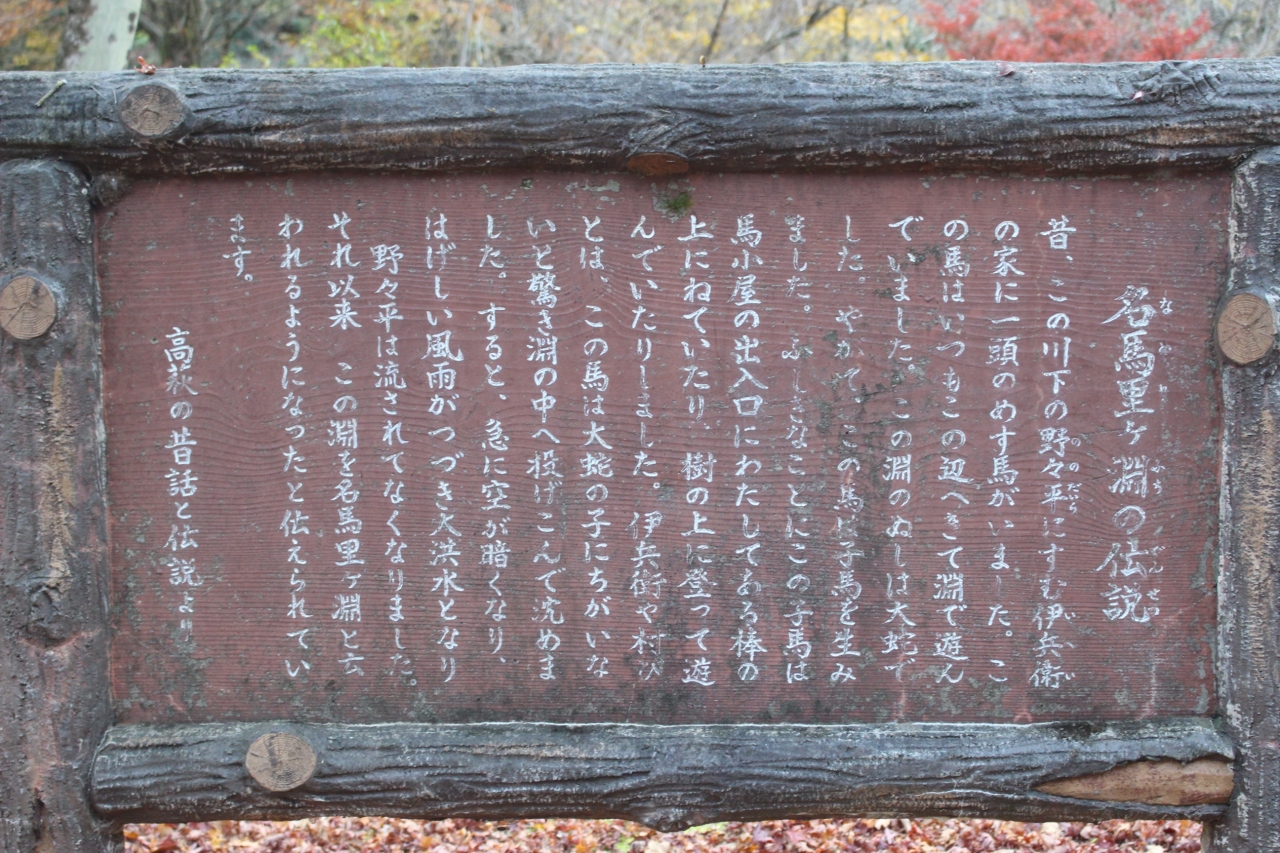 名馬里ヶ淵の伝説
昔、この川下の野々平にすむ伊兵衛
の家に一頭のめす馬がいました。こ
の馬はいつもこの辺へきて淵で遊ん
でいました。この淵のぬしは大蛇で
した。やがてこの馬は子馬を生み
ました。ふしぎなことにこの子馬は
馬小屋の出入口にわたしてある棒の
上にねていたり、樹の上に登って遊
んでいたりしました。伊兵衛や村び
とは、この馬は大蛇の子にちがいな
いと驚き淵の中へ投げこんで沈めま
した。すると、急に空が暗くなり、
はげしい風雨がつづき大洪水となり
野々平は流されてなくなりました。
それ以来 この淵を名馬里ヶ淵と云
われるようになったと伝えられてい
ます。
高萩の昔話と伝説より